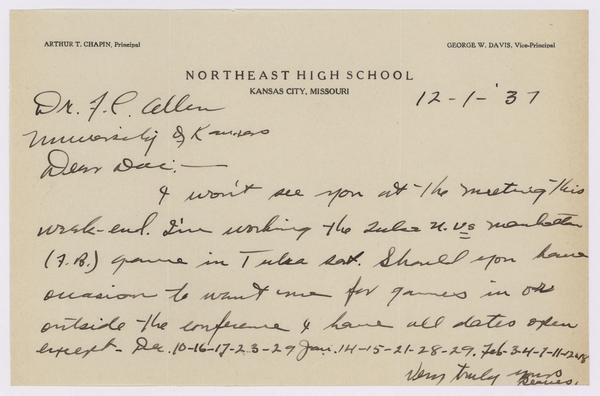 ARTHUR T. CHAPIN, Principal
GEORGE W. DAVIS, Vice-Principal
NORTHEAST HIGH SCHOOL
KANSAS CITY, MISSOURI
12-1-'37
Dr. F. C. Allen
University of Kansas
Dear Doc:—
I won't see you at the meeting this
week-end. I'm working the Tulsa U. vs Manhattan
(F.B.) game in Tulsa Sat. Should you have
occasion to want me for games in or
outside the conference I have all dates open
except - Dec. 10-16-17-23-29 Jan. 14-15-21-28-29. Feb-3-4-7-11-12
Very truly yours
Reaves.